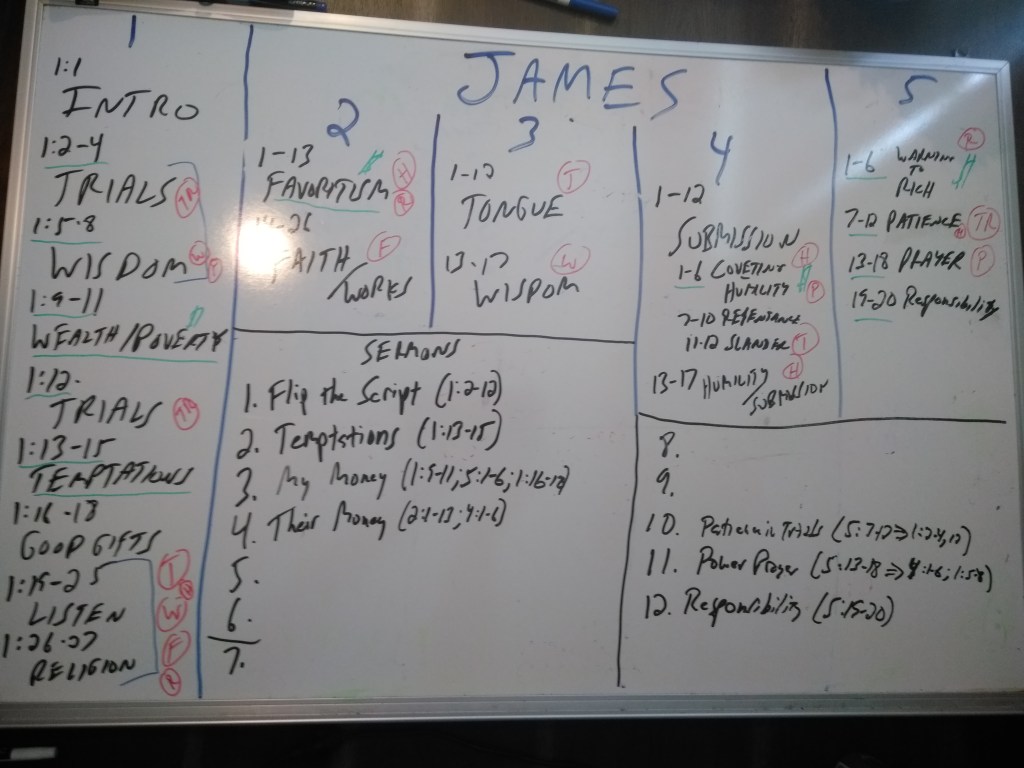 JAMES
1
1:1
INTRO
1:2-4
TRIALS TR
1:5-8
WISDOM W P
1:9-11
$
WEALTH/POVERTY
1:12
TRIALS TR
1:13-15
TEMPTATIONS
1:16-18
GOOD GIFTS
1:19-25 T
LISTEN W
1:26-27 F
RELIGION R
2
1-13 $
FAVORITISM H R
-26
FAITH F
/WORKS
3
1-12 T
TONGUE
13-17 W
WISDOM
4
1-12
SUBMISSION
1-6 COVETING H
HUMILITY $ P
7-10 REPENTANCE
11-12 SLANDER T
13-17 HUMILITY H
/SUBMISSION
5
R
1-6 WARNING $
TO
RICH
7-12 PATIENCE TR
13-18 PRAYER P
19-20 Responsibility
SERMONS
1. Flip the Script (1:2-12)
2. Temptations (1:13-15)
3. My Money (1:9-11; 5:1-6; 1:16-18)
4. Their Money (2:1-13; 4:1-6)
5.
6.
7.
8.
9.
10. Patience in Trials (5:7-12 ⇒ 1:2-4, 12)
11. Power Prayer (5:13-18 ⇒ 4:1-6; 1:5-8)
12. Responsibility (5:19-20)